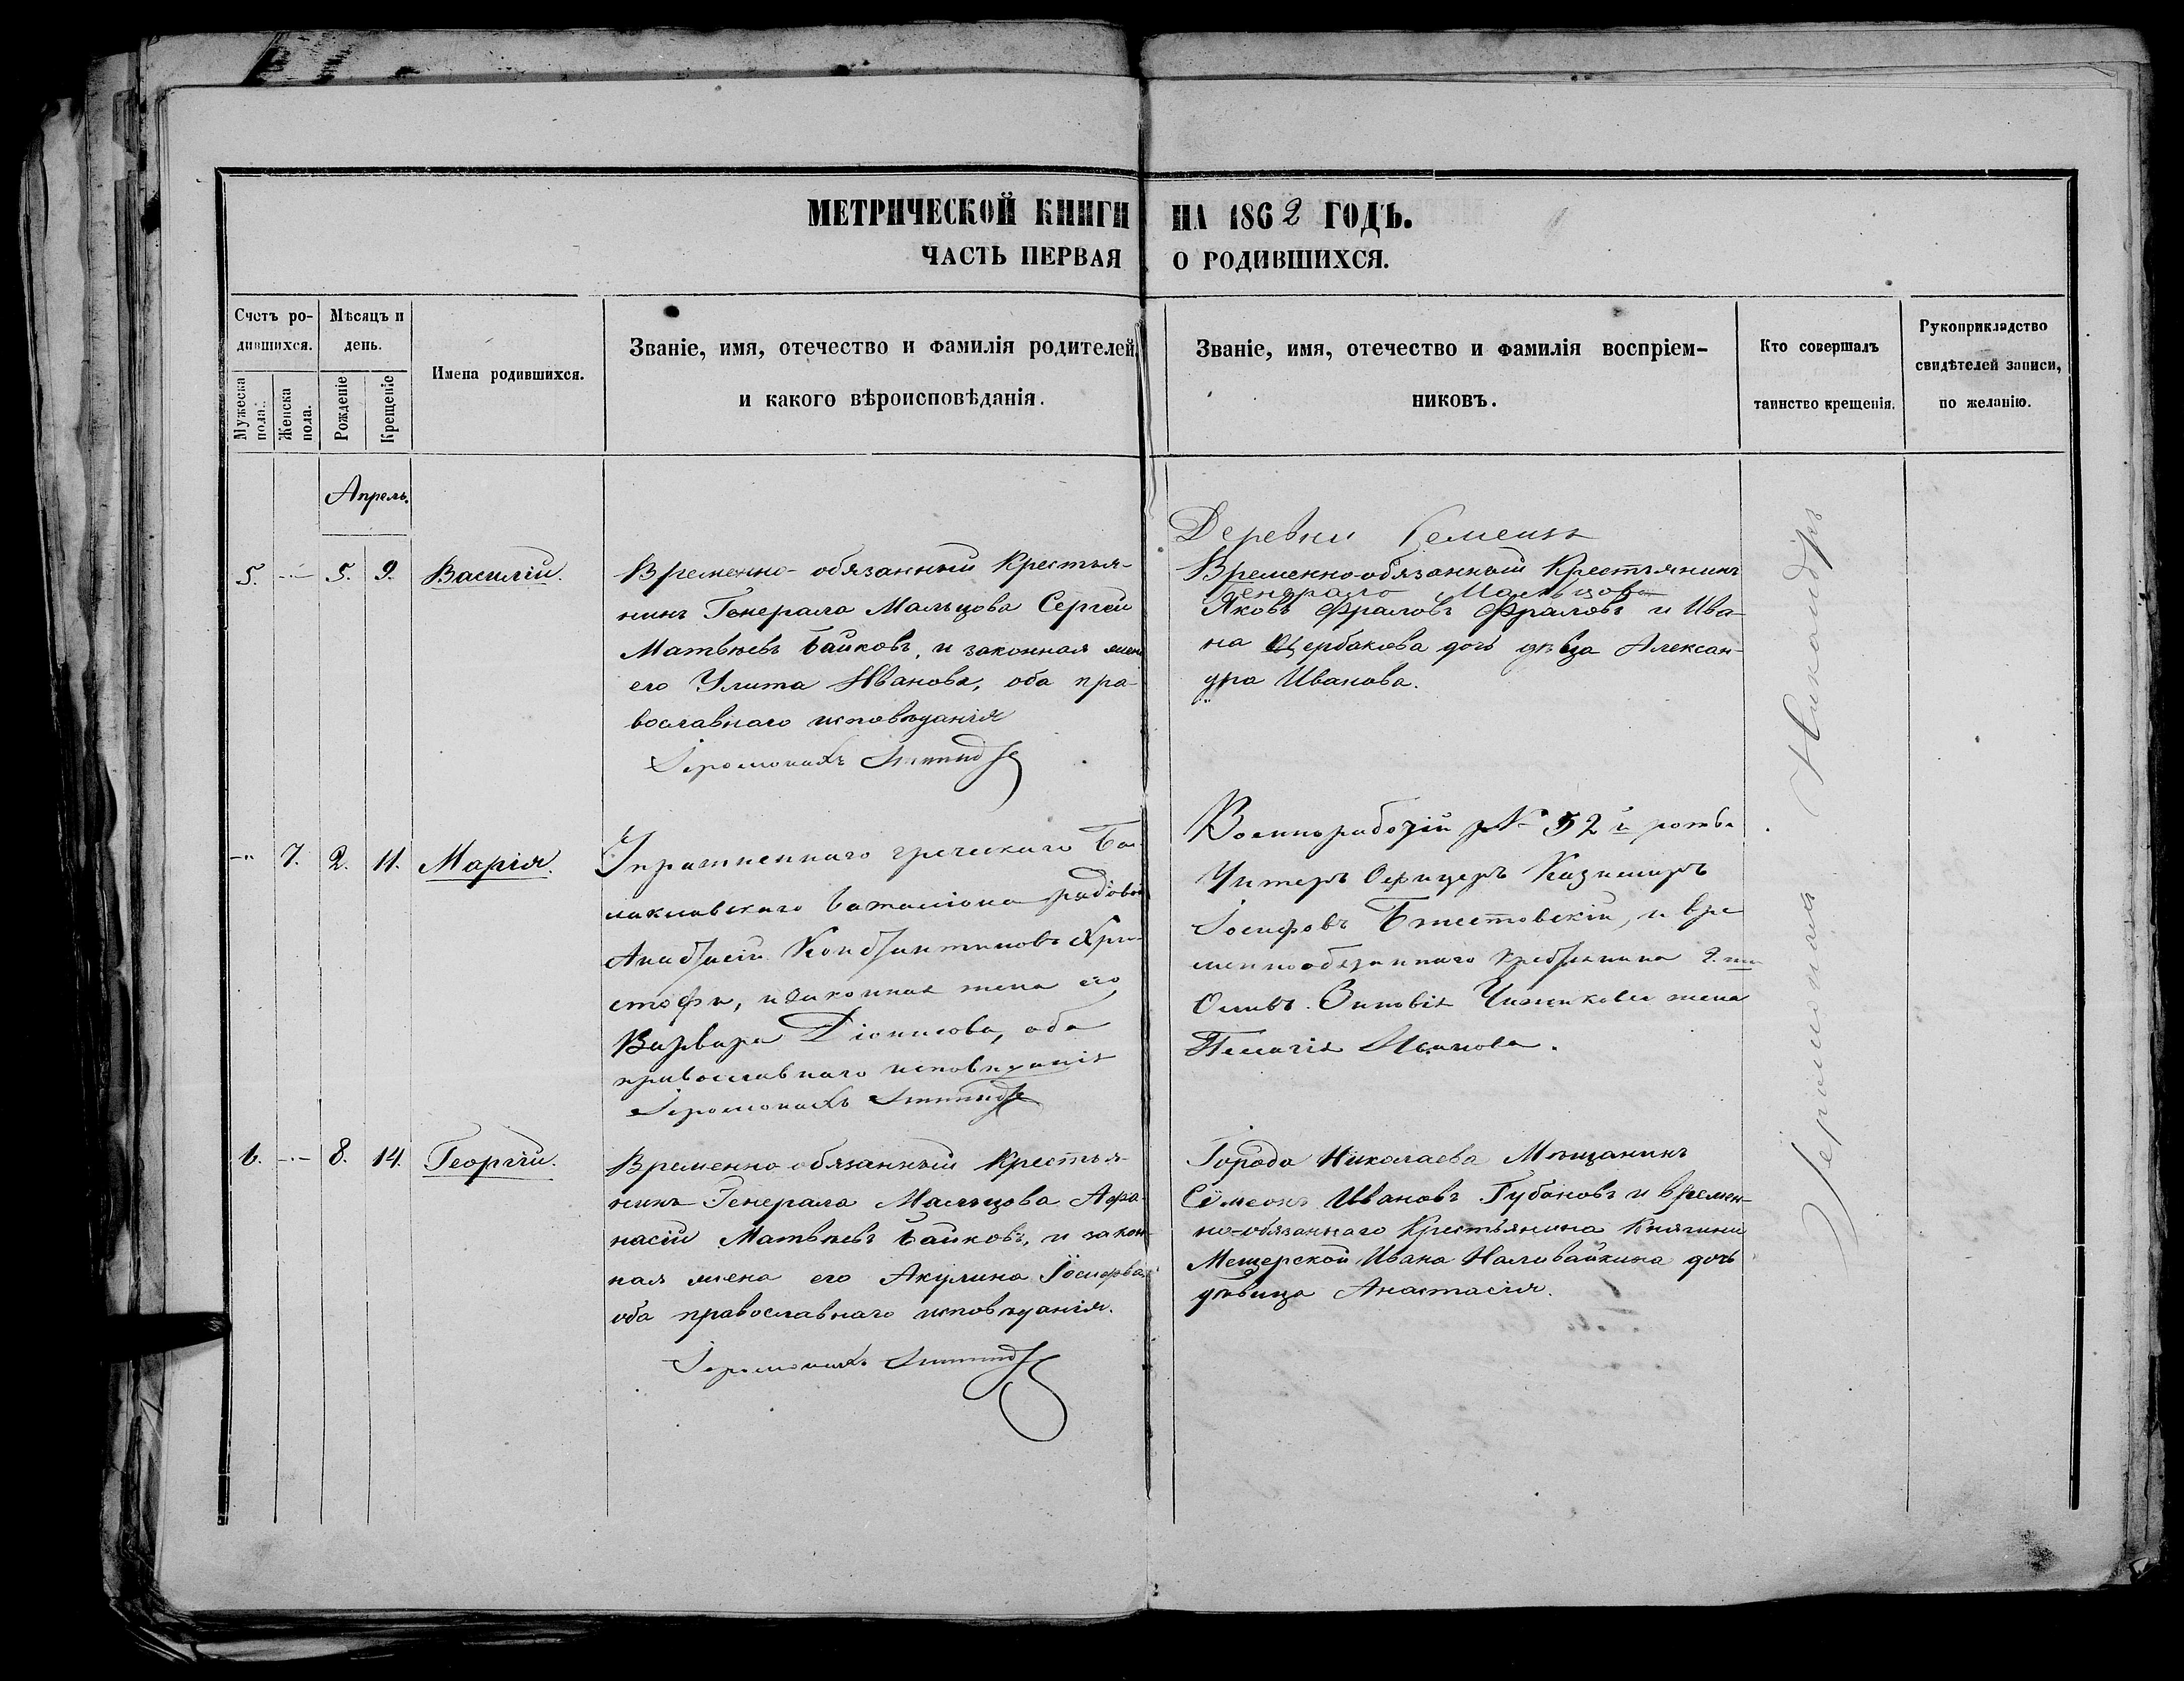 МЕТРИЧЕСКОЙ КНИГИ НА 1862 ГОДЪ.
ЧАСТЬ ПЕРВАЯ О РОДИВШИХСЯ.
Счетъ ро-
дившихся.
Мужеска
пола.
Женска
пола.
Мѣсяцъ и
день.
Рожденіе
Крещеніе
Имена родившихся.
Званіе, имя, отечество и фамилія родителей,
и какого вѣроисповѣданія.
Званіе, имя, отечество и фамилія воспріем-
никовъ.
Кто совершалъ
таинство крещенія.
Рукоприкладство
свидѣтелей записи,
по желанію.
Апрель.
5. 5. 9. Василій.
Временно-обязанный Крестья-
нинъ Генерала Мальцова Сергей
Матвѣевъ Байковъ, и законная жена
его Улита Иванова, оба пра-
вославнаго исповѣданія
Іеромонахъ
Деревни
Временно-обязанный Крестьянинъ
Генерала Мальцова
Яковъ Фраловъ Фраловъ и Ива-
на Щербакова дочь дѣвца Алексан-
дра Иванова.
7. 2. 11. Марія.
Упраженнаго греческаго Ба-
лаклавскаго баталіона рядовой
Анастасій Константиновъ Хри-
стофи, и законная жена его
Варвара Діонисова, оба
православнаго исповѣданія
Іеромонахъ
Военнорабочій № 52й роты
Унтеръ Офицеръ Казимиръ
Іосифовъ и вре
меннообязаннаго крестьянина
Зиновія жена
Пелагія
6. 8. 14. Георгій.
Временно обязанный Крестья-
нинъ Генерала Мальцова Афа-
насій Матвѣевъ Байковъ, и закон-
ная жена его Акулина Іосифова
оба православнаго исповѣданія.
Іеромонахъ
Города Николаева Мѣщанинъ
Сѵмеонъ Ивановъ Губановъ и времен-
но-обязаннаго Крестьянина Княгини
Мещерской Ивана Наливайкина дочь
дѣвица Анастасія.
Іеромонахъ Никандръ